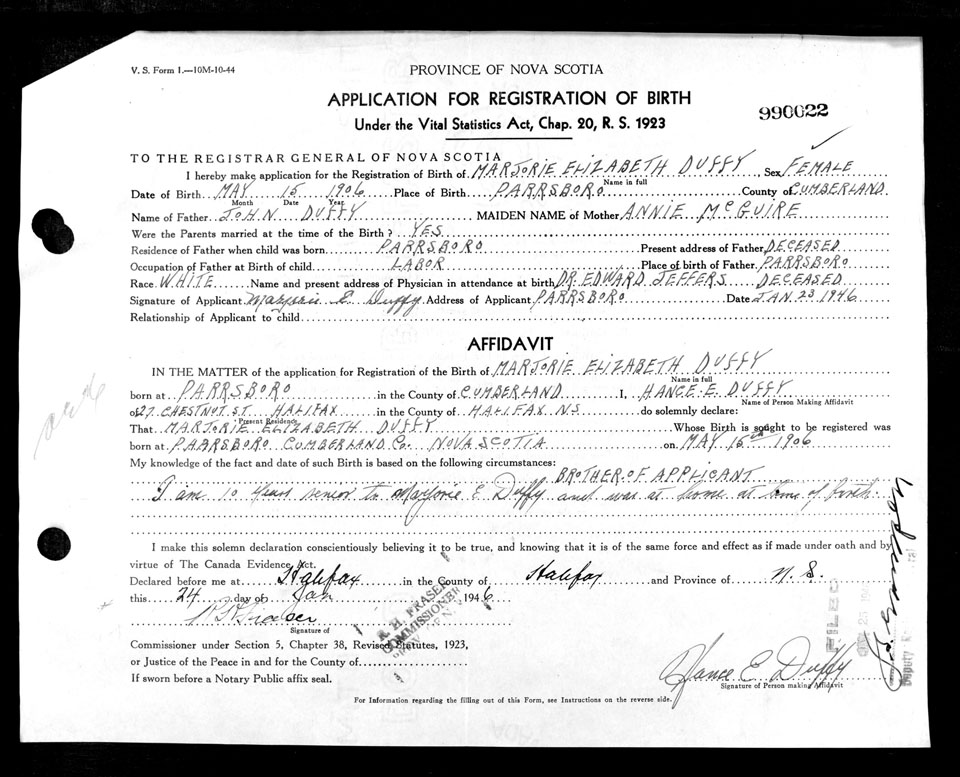 V. S. Form 1.—10M-10-44
PROVINCE OF NOVA SCOTIA
APPLICATION FOR REGISTRATION OF BIRTH
990022
Under the Vital Statistics Act, Chap. 20, R. S. 1923
TO THE REGISTRAR GENERAL OF NOVA SCOTIA
I hereby make application for the Registration of Birth of MARJORIE ELIZABETH DUFFY, Sex FEMALE
Name in full
Date of Birth MAY 15 1906 Place of Birth PARRSBORO County of CUMBERLAND
Month Date Year
Name of Father JOHN DUFFY MAIDEN NAME of Mother ANNIE McGUIRE
Were the Parents married at the time of the Birth? YES
Residence of Father when child was born PARRSBORO Present address of Father DECEASED
Occupation of Father at Birth of child LABOR Place of birth of Father PARRSBORO
Race WHITE Name and present address of Physician in attendance at birth DR. EDWARD JEFFERS DECEASED
Signature of Applicant Marjorie E. Duffy Address of Applicant PARRSBORO Date JAN. 23 1946
Relationship of Applicant to child
AFFIDAVIT
IN THE MATTER of the application for Registration of the Birth of MARJORIE ELIZABETH DUFFY
Name in full
born at PARRSBORO in the County of CUMBERLAND I, HANCE. E. DUFFY
Name of Person Making Affidavit
of 27 CHESTNOT. S.T. HALIFAX in the County of HALIFAX N.S do solemnly declare:
Present Residence
That MARJORIE ELIZABETH DUFFY Whose Birth is sought to be registered was
born at PARRSBORO CUMBERLAND Co. NOVA SCOTIA on MAY 15th 1906
My knowledge of the fact and date of such Birth is based on the following circumstances:
BROTHER OF APPLICANT
I am 10 years senior to Marjorie E Duffy and was at home at time of birth.
I make this solemn declaration conscientiously believing it to be true, and knowing that it is of the same force and effect as if made under oath and by
virtue of The Canada Evidence Act.
Declared before me at Halifax in the County of Halifax and Province of N. S.
this 24 day of Jan 1946
R H Fraser
Signature of
R. H. FRASER
COMMISSIONER
Commissioner under Section 5, Chapter 38, Revised Statutes, 1923,
or Justice of the Peace in and for the County of
If sworn before a Notary Public affix seal.
Hance E Duffy
Signature of Person making Affidavit
For Information regarding the filling out of this Form, see Instructions on the reverse side.
FILED
Deputy